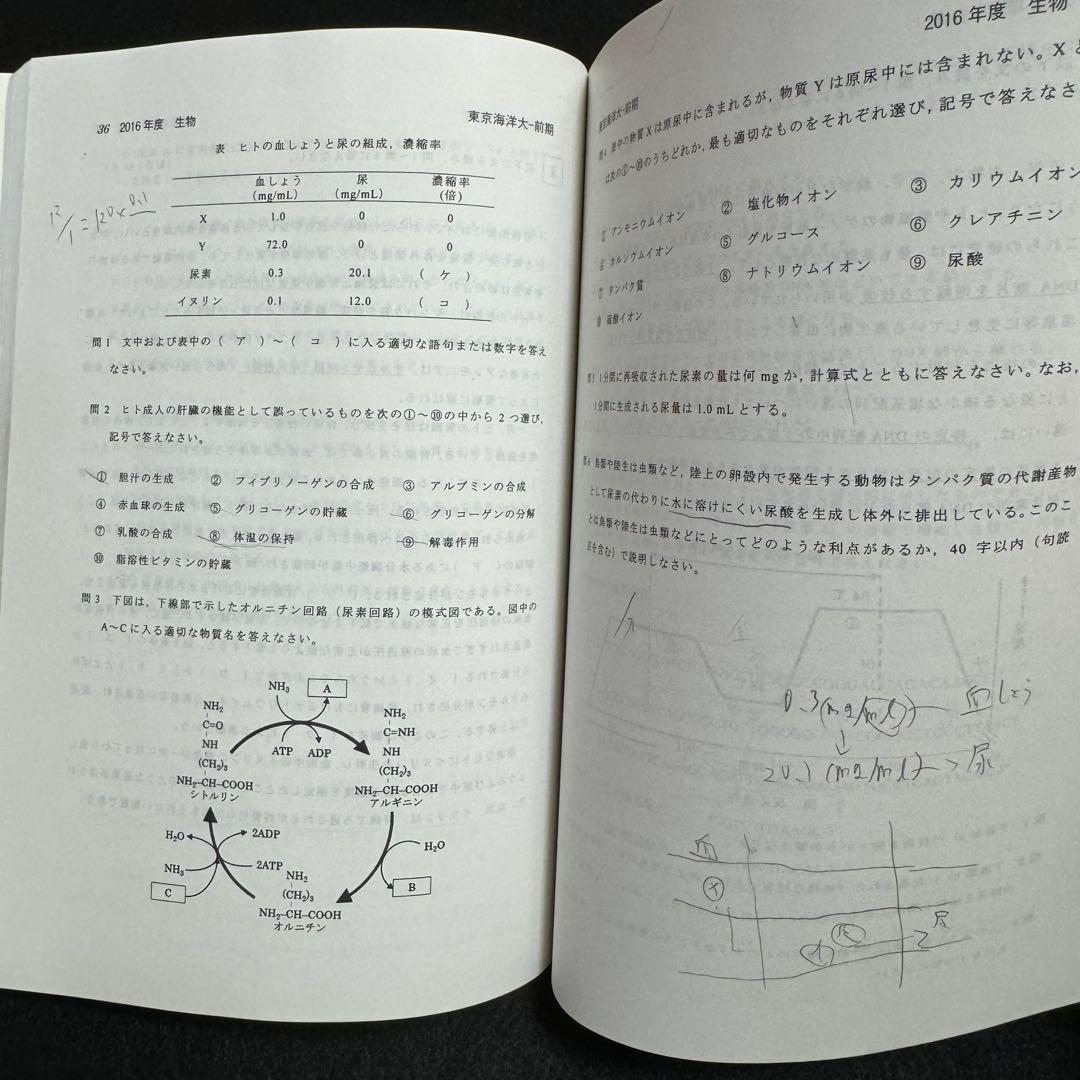 36 2016年度 生物
東京海洋大-前期
表 ヒトの血しょうと尿の組成，濃縮率
血しょう 尿 濃縮率
(mg/mL) (mg/mL) (倍)
X 1.0 0 0
Y 72.0 0 0
尿素 0.3 20.1 ( ケ )
イヌリン 0.1 12.0 ( コ )
問1 文中および表中の( ア )～( コ )に入る適切な語句または数字を答え
なさい。
問2 ヒト成人の肝臓の機能として誤っているものを次の①～⑩の中から2つ選び，
記号で答えなさい。
① 胆汁の生成 ② フィブリノーゲンの合成 ③ アルブミンの合成
④ 赤血球の生成 ⑤ グリコーゲンの貯蔵 ⑥ グリコーゲンの分解
⑦ 乳酸の合成 ⑧ 体温の保持 ⑨ 解毒作用
⑩ 脂溶性ビタミンの貯蔵
問3 下図は，下線部で示したオルニチン回路（尿素回路）の模式図である。図中の
A～Cに入る適切な物質名を答えなさい。
NH₃ A
NH₂
C=O
NH
(CH₂)₃
NH₂-CH-COOH
シトルリン
ATP ADP
NH₂
C=NH
NH
(CH₂)₃
NH₂-CH-COOH
アルギニン
H₂O 2ADP
NH₃ 2ATP
C
H₂O
B
NH₂
(CH₂)₃
NH₂-CH-COOH
オルニチン
2016年度 生物
東京海洋大-前期
問4 表中の物質Xは原尿中に含まれるが，物質Yは原尿中には含まれない。Xと
は次の①～⑩のうちどれか，最も適切なものをそれぞれ選び，記号で答えなさ
① アンモニウムイオン ② 塩化物イオン ③ カリウムイオン
④ カルシウムイオン ⑤ グルコース ⑥ クレアチニン
⑦ タンパク質 ⑧ ナトリウムイオン ⑨ 尿酸
⑩ 硫酸イオン
問5 1分間に再吸収された尿素の量は何mgか，計算式とともに答えなさい。なお，
1分間に生成される尿量は1.0 mLとする。
問6 鳥類や陸生は虫類など，陸上の卵殻内で発生する動物はタンパク質の代謝産物
として尿素の代わりに水に溶けにくい尿酸を生成し体外に排出している。このこ
とは鳥類や陸生は虫類などにとってどのような利点があるか，40字以内（句読
点を含む）で説明しなさい。
0.3(mg/ml) 血しょう
20.1 (mg/ml) 尿
血
尿